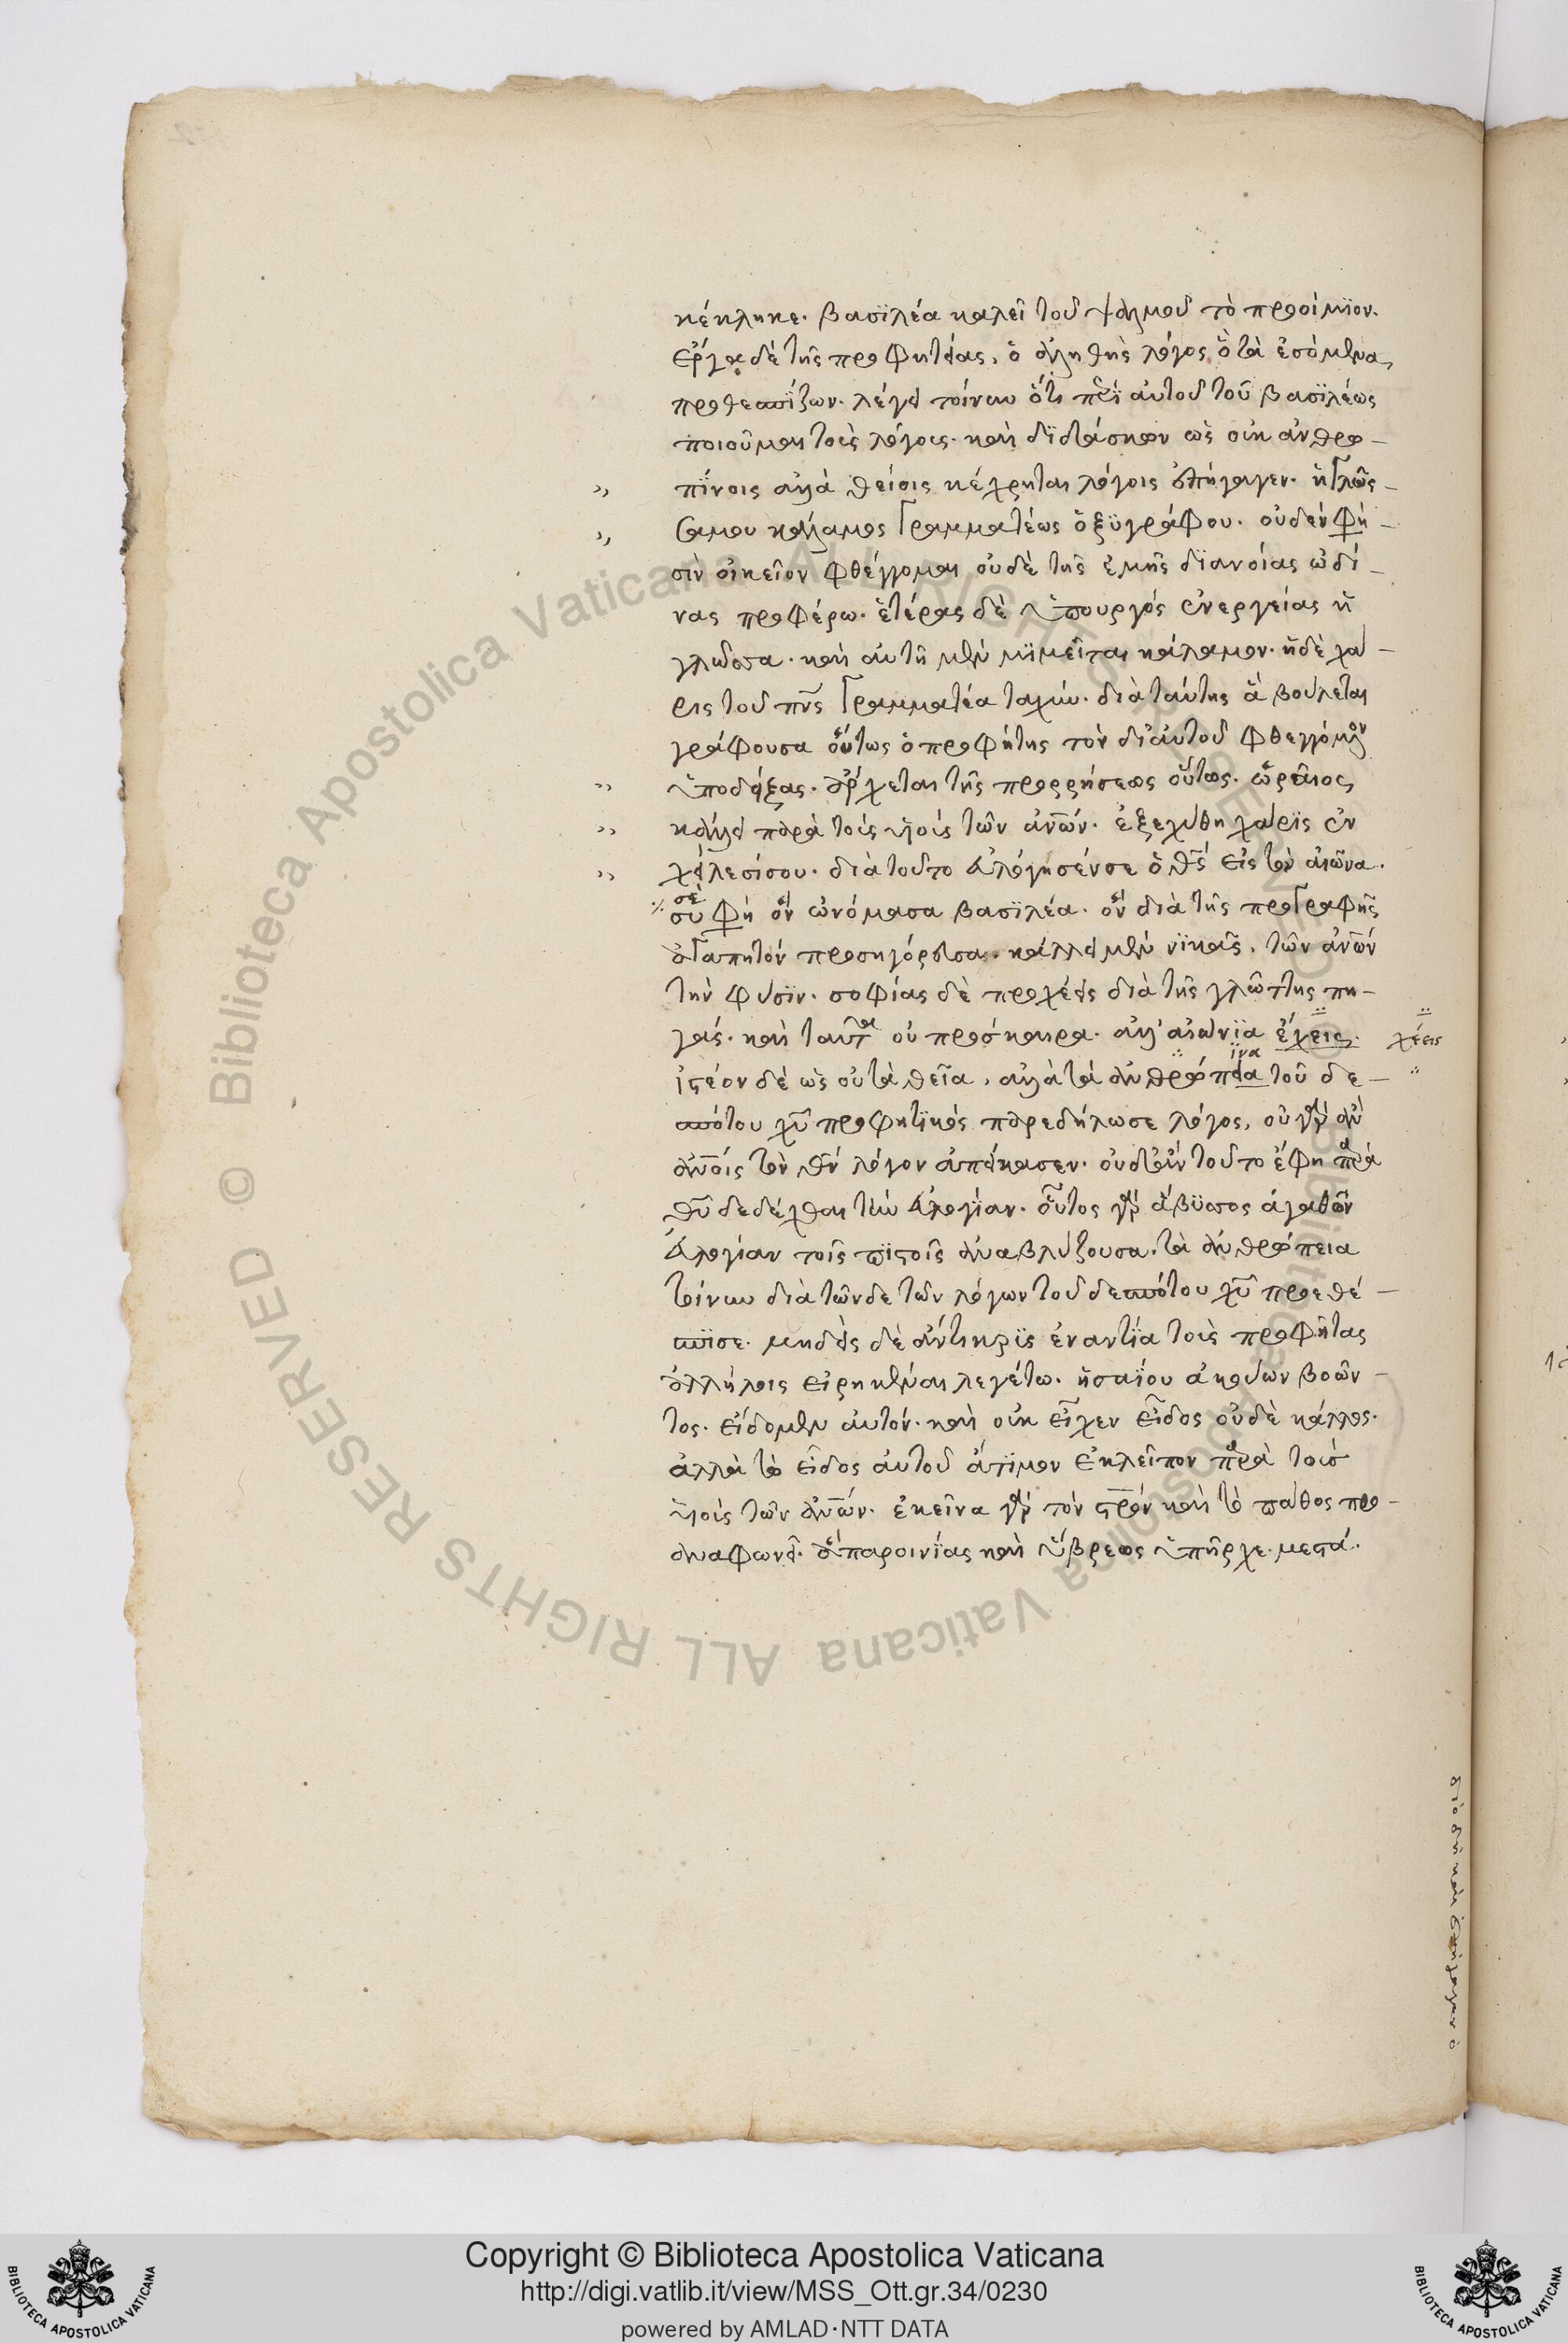 κέκληκε. βασϊλέα καλεῖ τοῦ ψαλμοῦ τὸ προοίμϊον.
ἔργα δὲ τῆς προφητείας, ὁ ἀληθὴς λόγος ὁ τὰ ἐσόμενα
προθεσπϊζων. λέγει τοίνυν ὅτι περὶ αὐτοῦ τοῦ βασϊλέως
ποιοῦμαι τοὺς λόγους. καὶ δϊδάσκων ὡς οὐκ ἀνθρω-
πΐνοις ἀλλὰ θείοις κέχρηται λόγοις ἐπήγαγεν. ἡ γλῶσ-
σα μου κάλαμος γραμματέως ὀξϋγράφου. οὐδέν φη-
σιν οἰκεῖον φθέγγομαι οὐδὲ τῆς ἐμῆς δϊανοίας ὠδῖ-
νας προφέρω. ἑτέρας δὲ ὑπουργός ἐνεργείας ἡ
γλῶσσα. καὶ αὐτὴ μὲν μϊμεῖται κάλαμον. ἡ δὲ χά-
ρις τοῦ πνς γραμματέα ταχύν. διὰ ταύτης ἃ βούλεται
γράφουσα οὕτως ὁ προφήτης τὸν δι' αὐτοῦ φθεγγόμενον
ὑποδείξας. ἄρχεται τῆς προρρήσεως οὕτως. ὡραῖος
κάλλει παρὰ τοὺς υἱοὺς τῶν ἀνων. ἐξεχύθη χάρϊς ἐν
χείλεσί σου. διὰ τοῦτο εὐλόγησέν σε ὁ θς εἰς τὸν αἰῶνα.
σὲ
σύ φη ὃν ὠνόμασα βασϊλέα. ὃν διὰ τῆς προγραφῆς
ἀγαπητόν προσηγόρευσα. κάλλει μὲν νϊκᾷς. τῶν ἀνων
τὴν φύσϊν. σοφίας δὲ προχέεις διὰ τῆς γλώττης πη-
γάς. καὶ ταύτα οὐ πρόσκαιρα. ἀλλ' αἰωνϊα ἔχεις. χέεις
ἰστέον δέ ὡς οὐ τὰ θεῖα. ἀλλὰ τὰ ἀνθρώπεια ινα τοῦ δε-
σπότου χυ προφητϊκός παρεδήλωσε λόγος, οὐ γὰρ ἂν
ἀνοις τὸν θν λόγον ἀπείκασεν. οὐδ' ἂν τοῦτο ἔφη παρὰ
θυ δεδέχθαι τὴν εὐλογΐαν. οὗτος γὰρ ἄβϋσσος ἀγαθῶν
εὐλογίαν τοῖς πϊστοῖς ἀναβλύζουσα. τὰ ἀνθρώπεια
τοίνυν διὰ τῶνδε τῶν λόγων τοῦ δεσπότου χυ προεθέ-
σπϊσε. μηδεὶς δὲ ἄντικρϋς ἐναντΐα τοὺς προφήτας
ἀλλήλοις εἰρηκέναι λεγέτω. ἡσαΐου ἀκούων βοῶν-
τος. εἴδομεν αὐτόν. καὶ οὐκ εἶχεν εἶδος οὐδὲ κάλλος.
ἀλλὰ τὸ εἶδος αὐτοῦ ἄτϊμον ἐκλεῖπον παρὰ τοὺς
υἱοὺς τῶν ἀνων. ἐκεῖνα γὰρ τὸν στρόν καὶ τὸ πάθος προ-
αναφωνεῖ. ἃ παροινΐας καὶ ὕβρεως ὑπῆρχε. μεστά.
διὸ δὴ καὶ ἐπήγαγεν ὁ
Copyright © Biblioteca Apostolica Vaticana
http://digi.vatlib.it/view/MSS_Ott.gr.34/0230
powered by AMLAD·NTT DATA